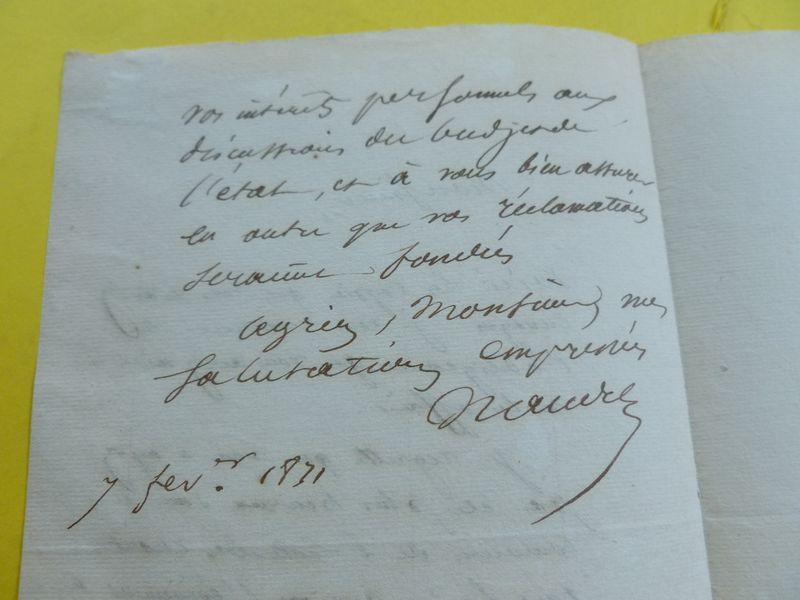 vos intérêts personnels aux
discussions du budjet de
l'état, et à vous bien assurer
en outre que vos réclamations
seraient fondées
agriez, Monsieur, mes
salutations empressées
Naudet
7 fev.er 1831